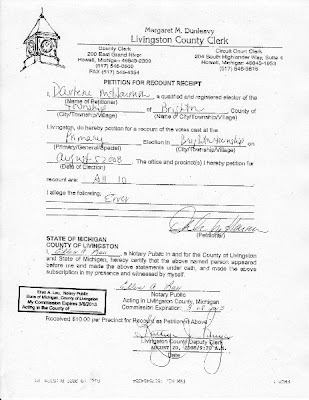 Margaret M. Dunleavy
Livingston County Clerk
County Clerk
200 East Grand River
Howell, Michigan 48843-2399
(517) 546-0500
FAX (517) 546-4354
Circuit Court Clerk
204 South Highlander Way, Suite 4
Howell, Michigan 48843-1953
(517) 546-9816
PETITION FOR RECOUNT RECEIPT
I, Darlene, a qualified and registered elector of the
(Name of Petitioner)
Township of Brighton County of
(City/Township/Village) (Name of City/Township/Village)
Livingston, do hereby petition for a recount of the votes cast at the
Primary Election in Brighton Township on
(Primary/General/Special) (City/Township/Village)
August 5 2008. The office and precinct(s) I hereby petition for
(Date of Election)
recount are: All 10
I allege the following:
Error
(Petitioner)
STATE OF MICHIGAN
COUNTY OF LIVINGSTON
I, a Notary Public in and for the County of Livingston
and State of Michigan, hereby certify that the above named person appeared
before me and made the above statements under oath, and made the above
subscription in my presence and witnessed by myself.
Notary Public
State of Michigan, County of Livingston
My Commission Expires
Acting in the County of
Notary Public
Acting in Livingston County, Michigan
Commission Expiration:
Received $10.00 per Precinct for Recount as Petitioned Above
Livingston County Deputy Clerk
AUGUST 20, 2008
Date